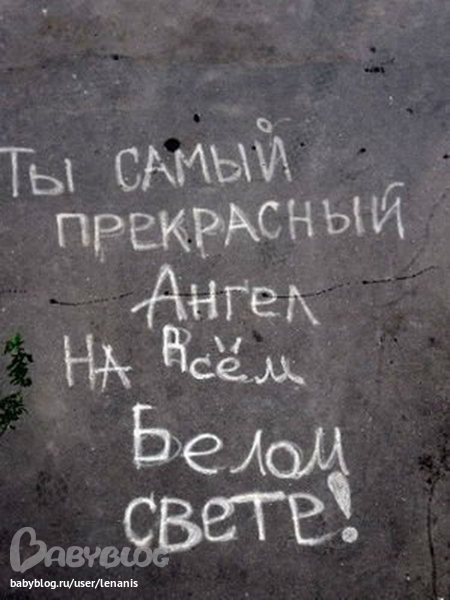 Ты самый
прекрасный
Ангел
на всём
Белом
свете!
BABYBLOG
babyblog.ru/user/lenanis